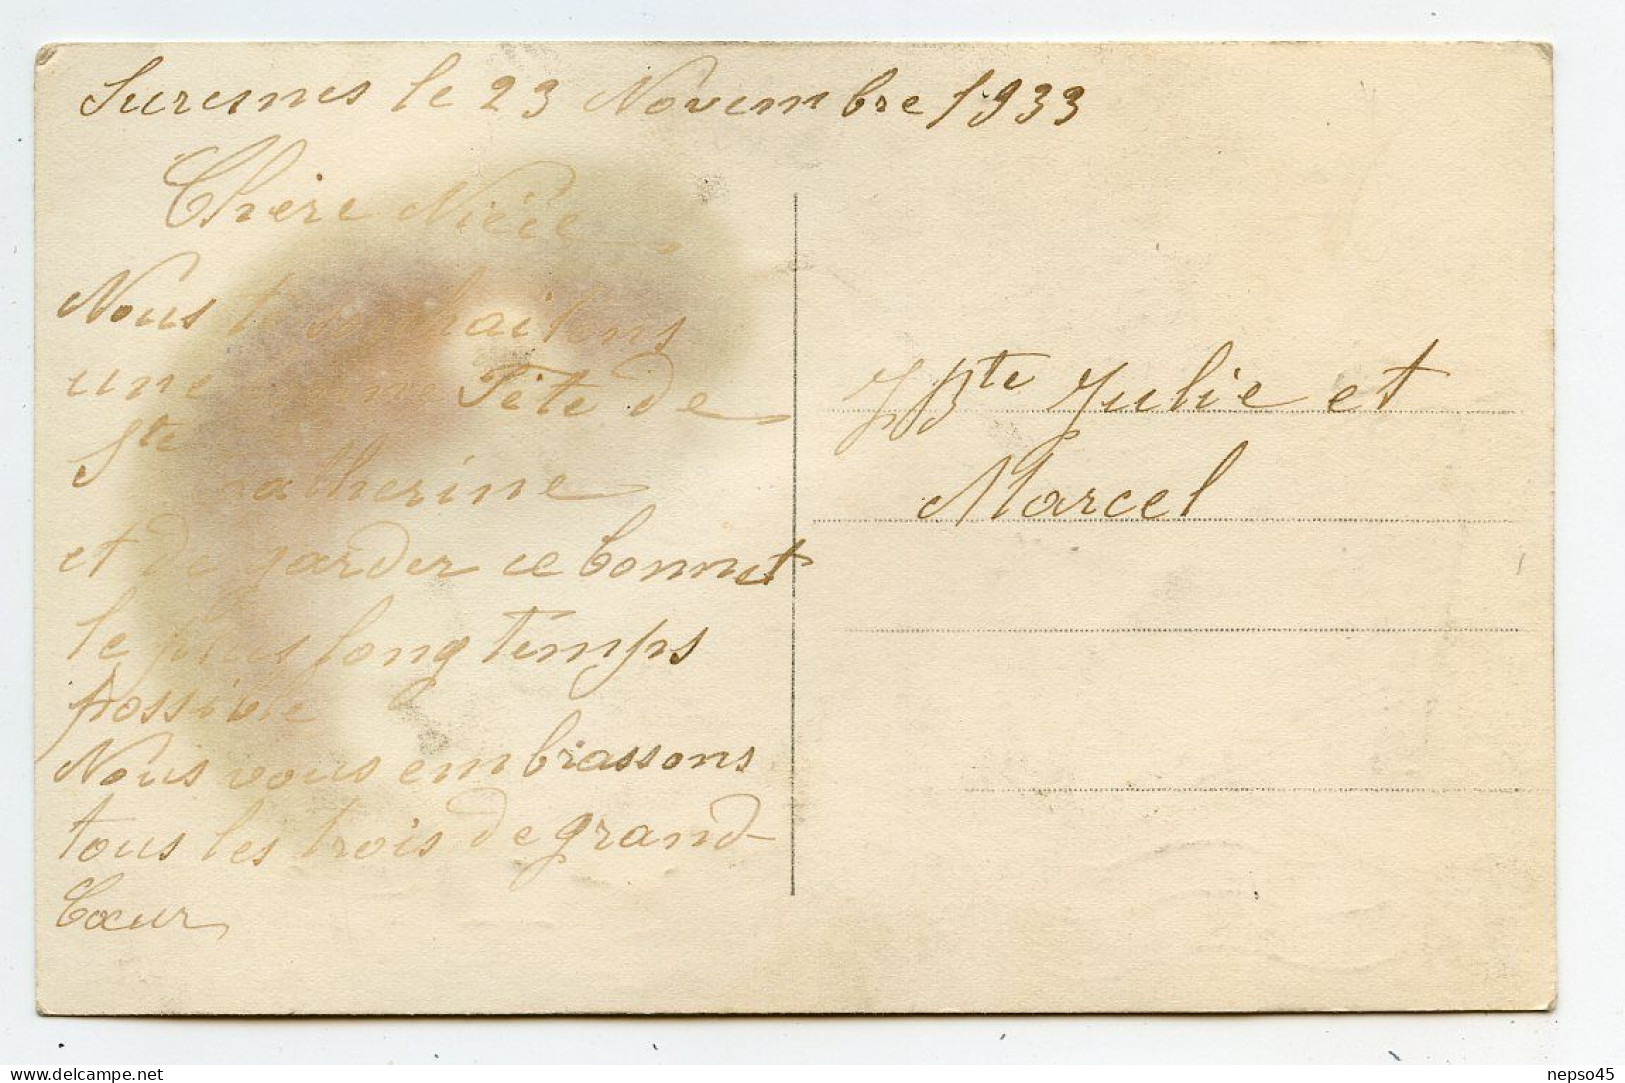 Suresnes le 23 Novembre 1933
Chère Nièce,
Nous te souhaitons
une bonne Fête de
Ste
Catherine
et de garder ce bonnet
le plus long temps
possible
Nous vous embrassons
tous les trois de grand
Cœur
JBte Julie et
Marcel
nepso45